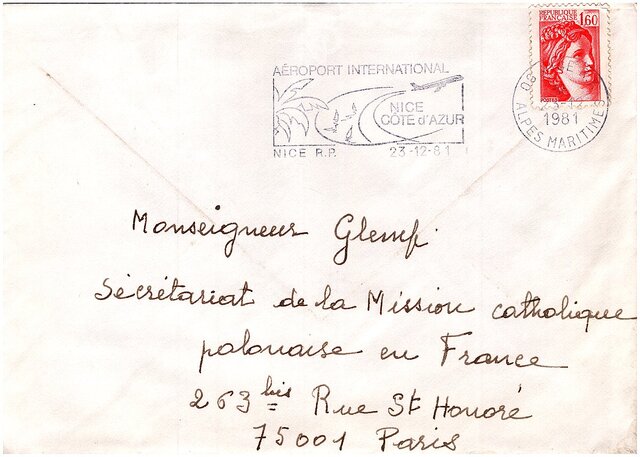 RÉPUBLIQUE FRANÇAISE 1,60
POSTES
AÉROPORT INTERNATIONAL
NICE
CÔTE d'AZUR
NICE R.P. 23-12-81
1981
ALPES MARITIMES
Monseigneur Glemp.
Sécrétariat de la Mission catholique
polonaise en France
263 bis Rue St Honoré
75001 Paris